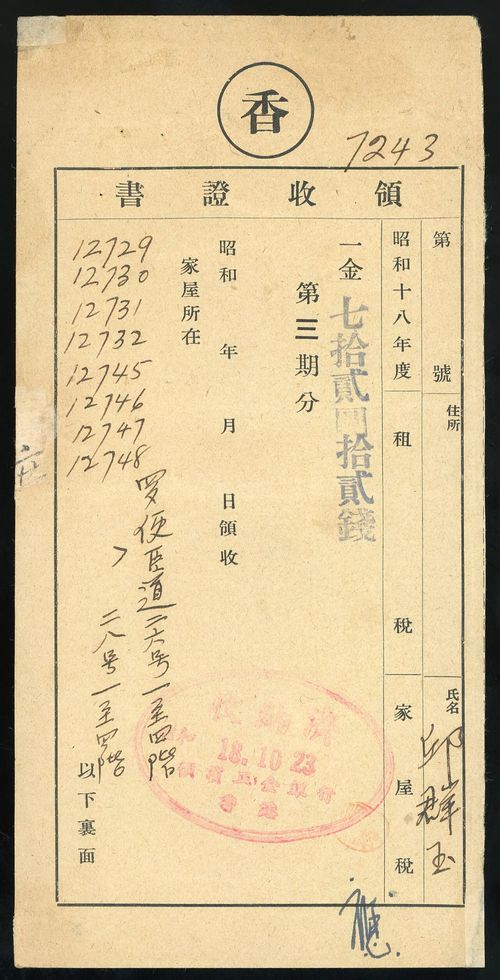 香
7243
領收證書
第 號
住所
氏名 邱群玉
昭和十八年度 租稅 家屋稅
一金 七拾貳円拾貳錢
第三期分
昭和 年 月 日領收
家屋所在
12729
12730
12731
12732
12745
12746
12747
12748
罗便臣道二六号一至四階
二八号一至四階
以下裏面
18.10.23
香港